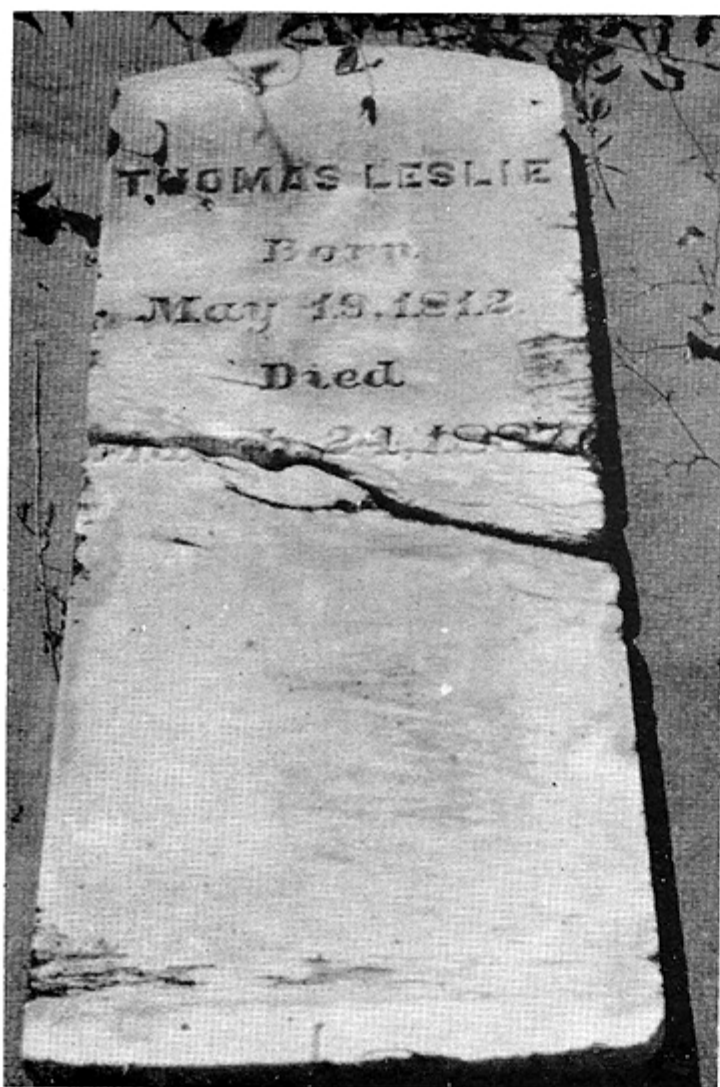 THOMAS LESLIE
Born
May 19.1812
Died
24,1887